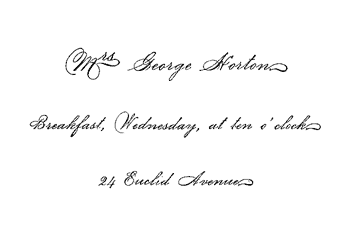 Mrs George Horton
Breakfast, Wednesday, at ten o'clock
24 Euclid Avenue